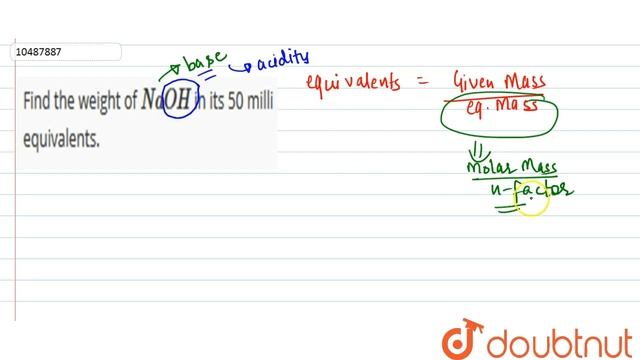 10487887
Find the weight of NaOH in its 50 milli
equivalents.
base
acidity
equivalents = Given Mass
eq. Mass
Molar Mass
n-factor
doubtnut